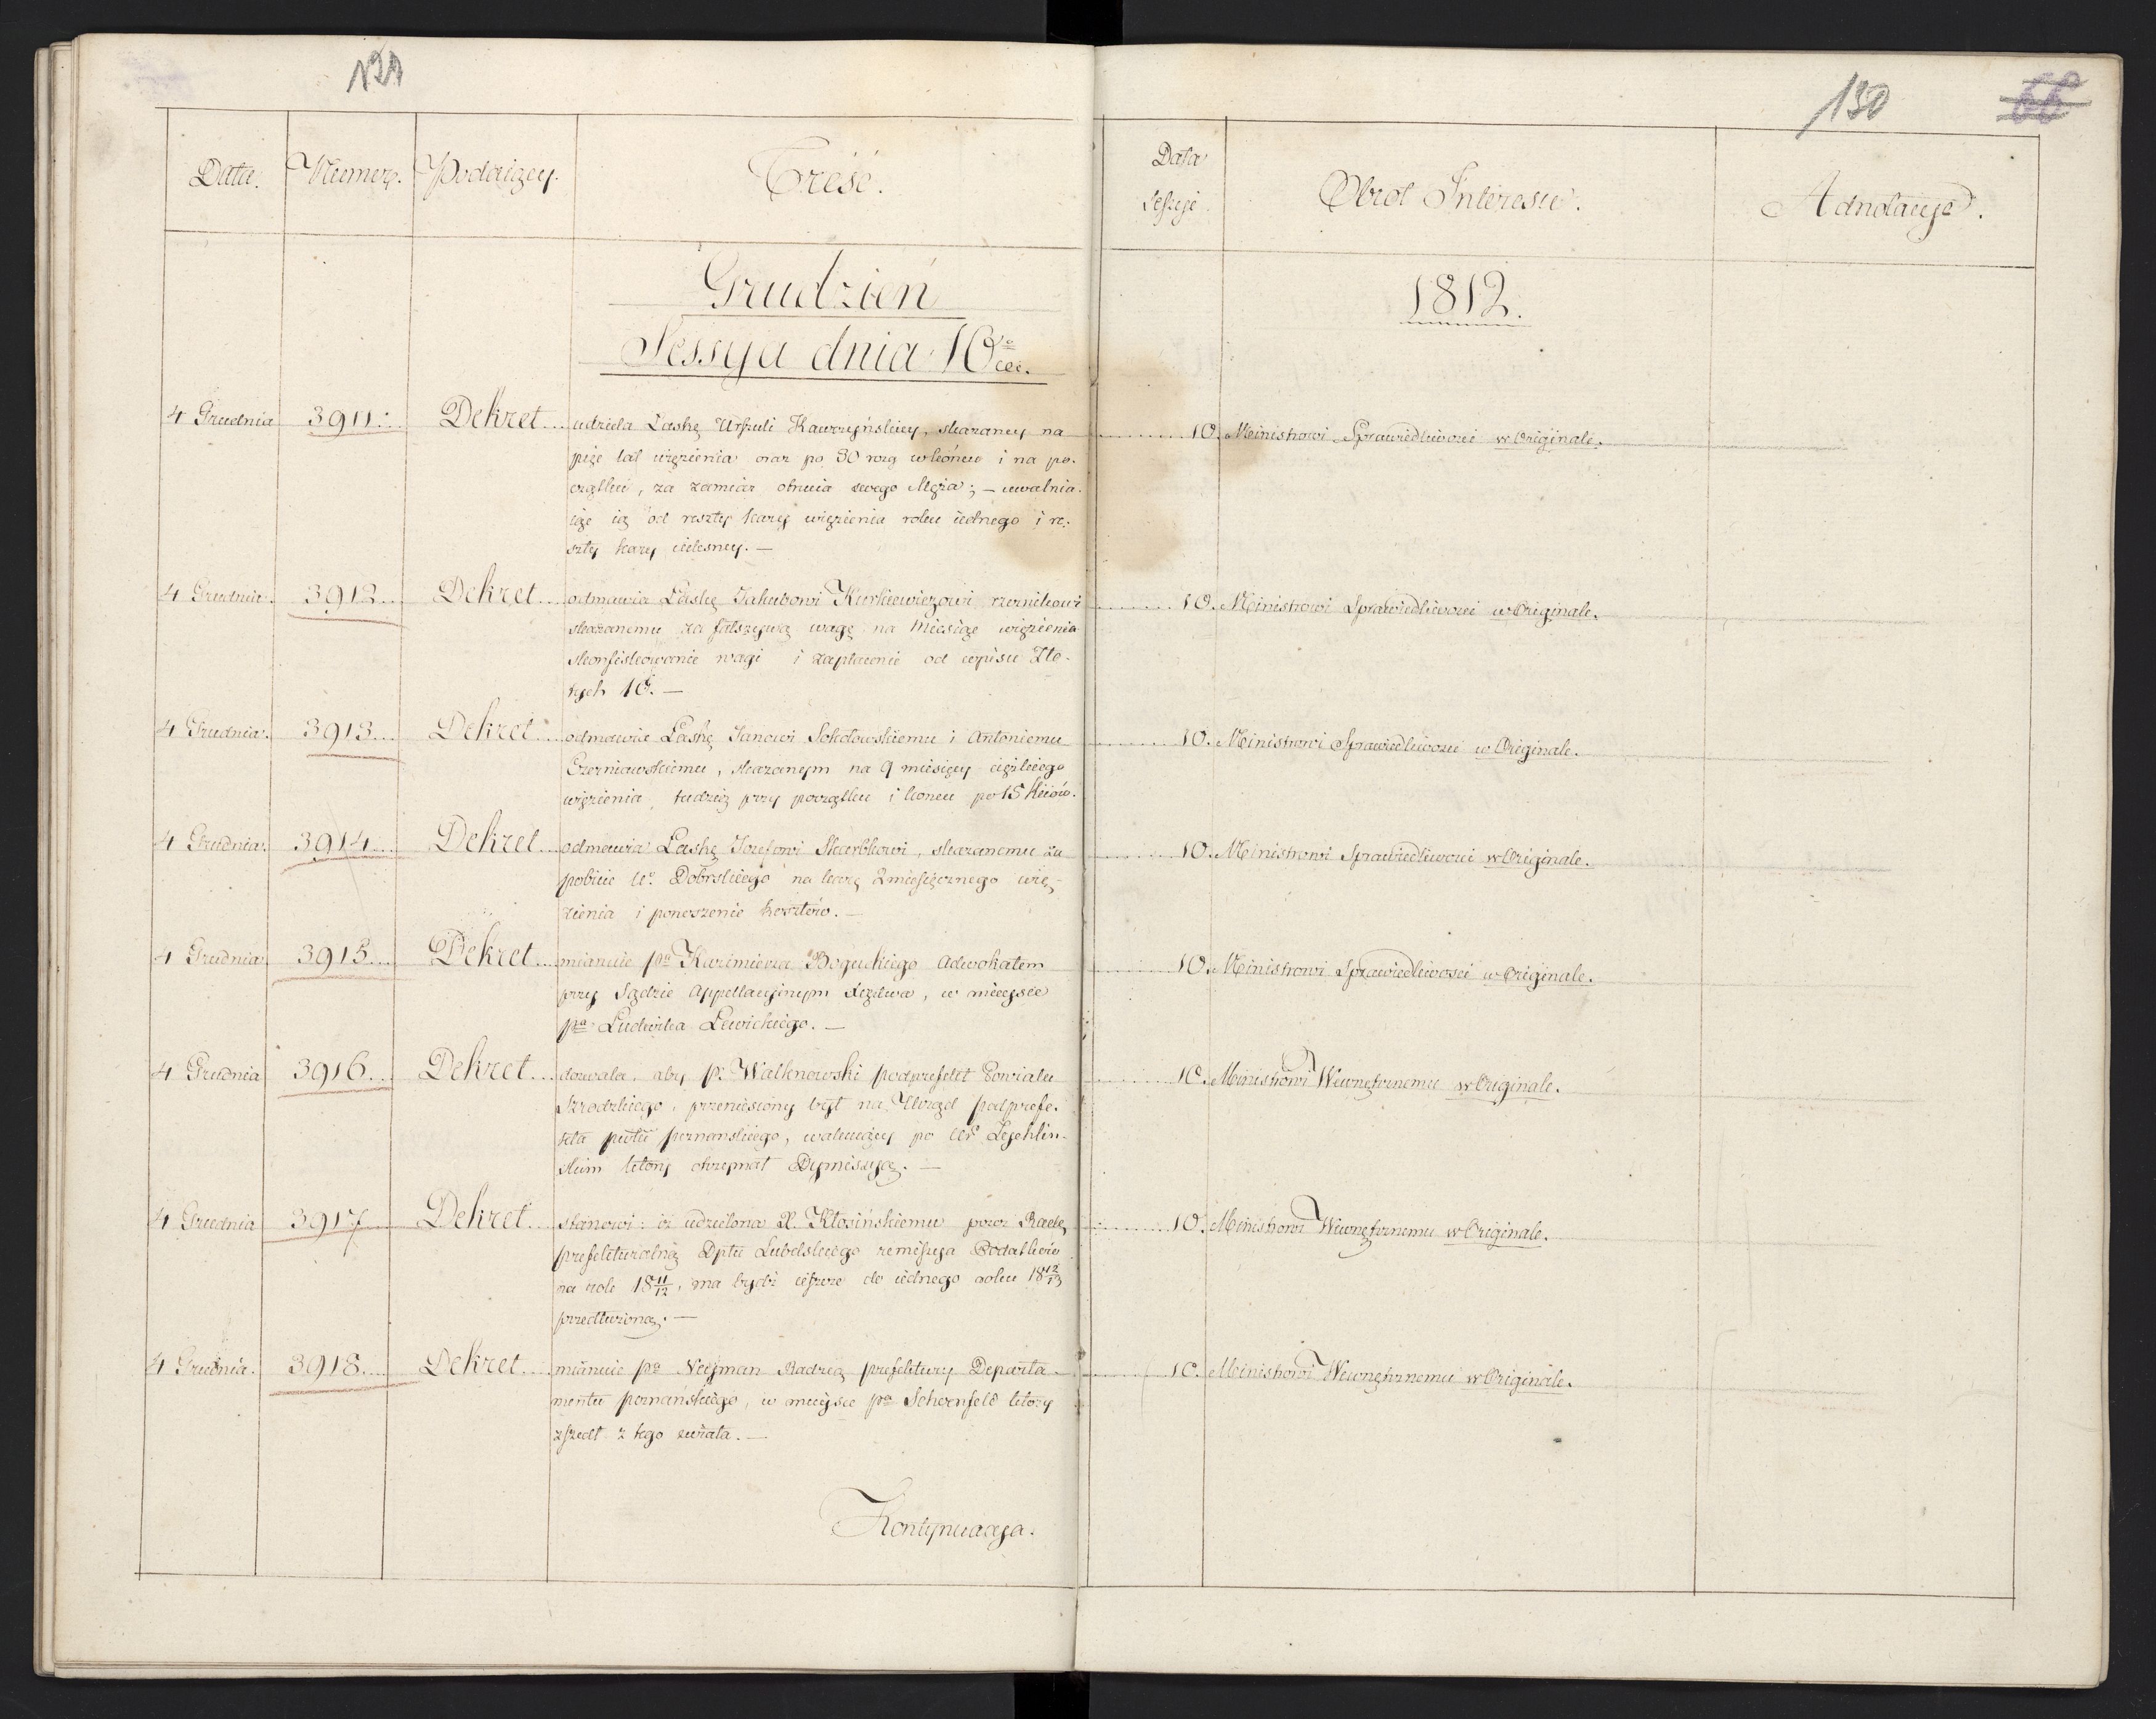 129
130
66
Data.
Numer.
Podaiący.
Treść.
Data
Sessyi
Obrot Interesu.
Adnotacye.
Grudzień
1812.
Sessya dnia 10go
4 Grudnia 3911. Dekret udziela Łaskę Urszuli Kawczyńskiey, skazaney na
pięć lat więzienia oraz po 30 rozg w końcu i na po-
czątku, za zamiar otrucia swego Męża; — uwalnia-
iąc ią od reszty kary więzienia roku iednego i re-
szty kary cielesney. —
10. Ministrowi Sprawiedliwości w Originale.
4 Grudnia. 3912. Dekret odmawia Łaskę Jakubowi Kurkiewiczowi rzeźnikowi
skazanemu za fałszywą wagę na Miesiąc więzienia
skonfiskowanie wagi i zapłacenie od wpisu Zło-
tych 16. —
10. Ministrowi Sprawiedliwości w Originale.
4 Grudnia. 3913. Dekret odmawia Łaskę Janowi Sokołowskiemu i Antoniemu
Czerniawskiemu, skazanym na 9 miesięcy ciężkiego
więzienia, tudzież przy początku i końcu po 15 kiiów.
10. Ministrowi Sprawiedliwości w Originale.
4 Grudnia. 3914. Dekret odmawia Łaskę Józefowi Skarbkowi, skazanemu za
pobicie Ur. Dobrskiego na karę 2 miesięcznego wię-
zienia i ponoszenie kosztów. —
10. Ministrowi Sprawiedliwości w Originale.
4 Grudnia 3915. Dekret mianuie pa Kazimierza Boguckiego Adwokatem
przy Sądzie Appellacyinym Xięstwa, w mieysce
pa Ludwika Lewickiego. —
10. Ministrowi Sprawiedliwości w Originale.
4 Grudnia 3916. Dekret dozwala, aby p. Walknowski podprefekt Powiatu
Szrodzkiego, przeniesiony był na Urząd podprefe-
kta pwtu poznańskiego, wakuiący po Ur.
skim który otrzymał Dymissyą. —
10. Ministrowi Wewnętrznemu w Originale.
4 Grudnia 3917. Dekret stanowi: iż udzielona X. Kłosińskiemu przez Radę
prefekturalną Dptu Lubelskiego remissya Podatków
na rok 18 11/12, ma bydź ieszcze do iednego roku 18 12/13
przedłużoną. —
10. Ministrowi Wewnętrznemu w Originale.
4 Grudnia. 3918. Dekret mianuie pa Neyman Radzcą prefektury Departa-
mentu poznańskiego, w mieysce pa Schernfeld który
zszedł z tego świata. —
10. Ministrowi Wewnętrznemu w Originale.
Kontynuacya.